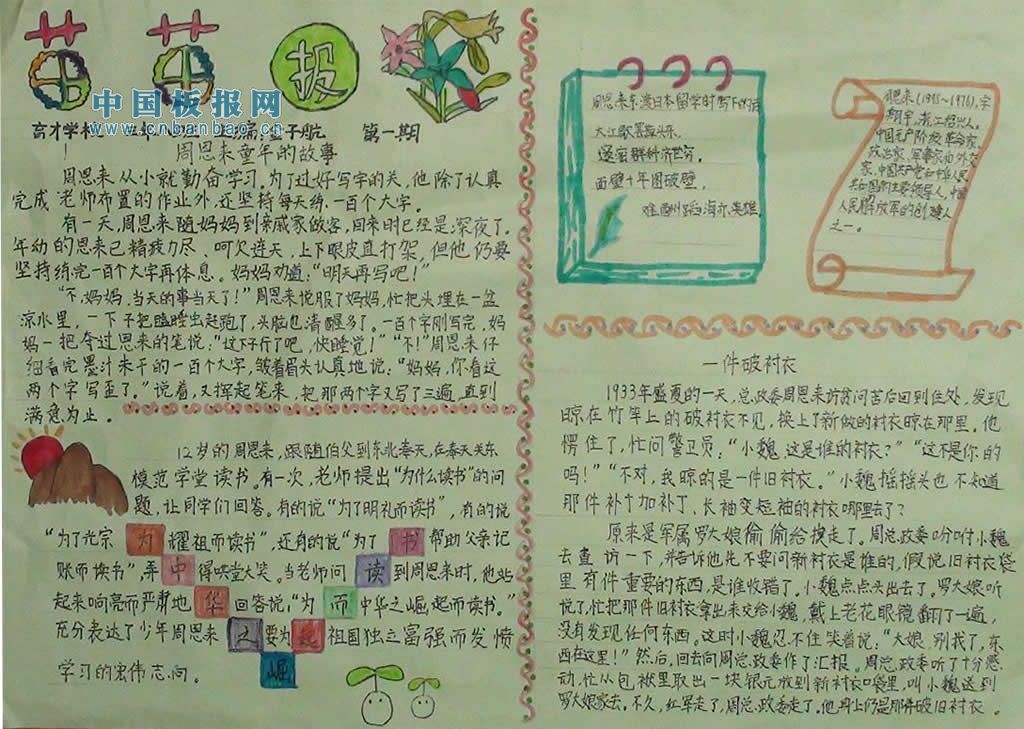 芽芽报
中国板报网
www.cnbanbao.cn
育才学校
第一期
周恩来童年的故事
周恩来从小就勤奋学习。为了过好写字的关,他除了认真
完成老师布置的作业外,还坚持每天练一百个大字。
有一天,周恩来随妈妈到亲戚家做客,回来时已经是深夜了。
年幼的恩来已精疲力尽、呵欠连天,上下眼皮直打架,但他仍要
坚持练完一百个大字再休息。妈妈劝道:“明天再写吧!”
“不,妈妈,当天的事当天了!”周恩来说服了妈妈,忙把头埋在一盆
凉水里,一下子把瞌睡虫赶跑了,头脑也清醒多了。一百个字刚写完,妈
妈一把夺过恩来的笔说:“这下子行了吧,快睡觉!”“不!”周恩来仔
细看完墨汁未干的一百个大字,皱着眉头认真地说:“妈妈,你看这
两个字写歪了。”说着,又挥起笔来,把那两个字又写了三遍,直到
满意为止。
12岁的周恩来,跟随伯父到东北奉天,在奉天关东
模范学堂读书。有一次,老师提出“为什么读书”的问
题,让同学们回答。有的说“为了明礼而读书”,有的说
“为了光宗 耀祖而读书”,还有的说“为了 帮助父亲记
账而读书”,弄 得哄堂大笑。当老师问 到周恩来时,他站
起来响亮而严肃地 回答说:“为 中华之崛起而读书。”
充分表达了少年周恩来 要为 祖国独立富强而发愤
学习的宏伟志向。
为中华之崛起而读书
周恩来东渡日本留学时写下的诗
大江歌罢掉头东,
邃密群科济世穷。
面壁十年图破壁,
难酬蹈海亦英雄。
周恩来(1898~1976),字
翔宇,浙江绍兴人。
中国无产阶级革命家、
政治家、军事家和外交
家,中国共产党和中华人民
共和国主要领导人,中国
人民解放军的创建人
之一。
一件破衬衣
1933年盛夏的一天,总政委周恩来访贫问苦后回到住处,发现
晾在竹竿上的破衬衣不见,换上了新做的衬衣晾在那里。他
愣住了,忙问警卫员:“小魏,这是谁的衬衣?”“这不是你的
吗!”“不对,我晾的是一件旧衬衣。”小魏摇摇头也不知道
那件补丁加补丁、长袖变短袖的衬衣哪里去了?
原来是军属罗大娘偷偷给换走了。周总政委吩咐小魏
去查访一下,并告诉他先不要问新衬衣是谁的,假说旧衬衣袋
里有件重要的东西,是谁收错了。小魏点点头出去了。罗大娘听
说了,忙把那件旧衬衣拿出来交给小魏,戴上老花眼镜翻了一遍,
没有发现任何东西。这时小魏忍不住笑着说:“大娘,别找了,东
西在这里!”然后,回去向周总政委作了汇报。周总政委听了十分感
动,忙从包袱里取出一块银元放到新衬衣口袋里,叫小魏送到
罗大娘家去。不久,红军走了,周总政委走了。他身上仍是那件破旧衬衣。